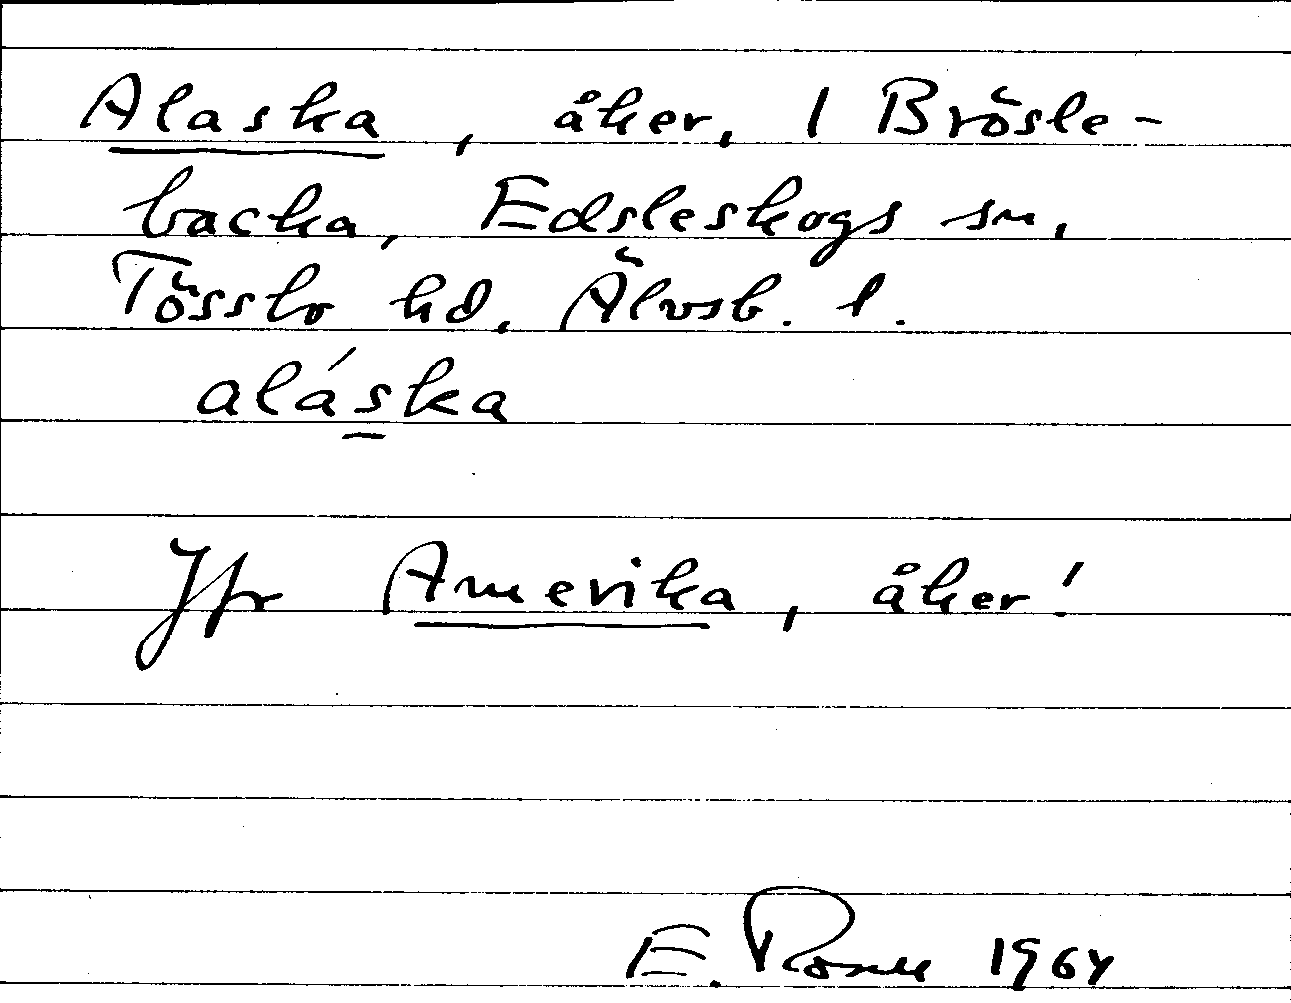 Alaska, åker, 1 Brösle-
backa, Edsleskogs sn,
Tössbo hd, Älvsb. l.
aláska
Jfr Amerika, åker!
E. 1964